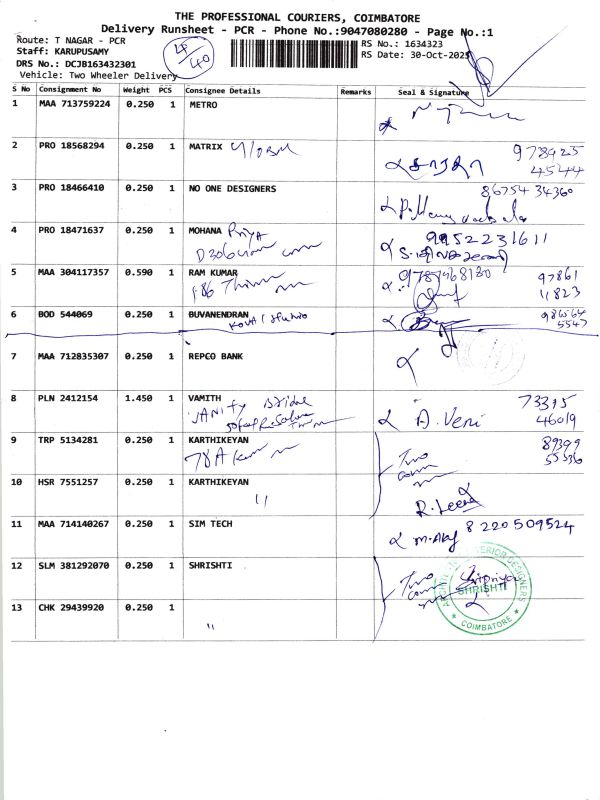 THE PROFESSIONAL COURIERS, COIMBATORE
Delivery Runsheet - PCR - Phone No.:9047080280 - Page No.:1
Route: T NAGAR - PCR
Staff: KARUPUSAMY
DRS No.: DCJB163432301
Vehicle: Two Wheeler Delivery
RS No.: 1634323
RS Date: 30-Oct-2025
S No Consignment No Weight PCS Consignee Details Remarks Seal & Signature
1 MAA 713759224 0.250 1 METRO
2 PRO 18568294 0.250 1 MATRIX 978925
4544
3 PRO 18466410 0.250 1 NO ONE DESIGNERS 86754 34360
4 PRO 18471637 0.250 1 MOHANA Priya 9952231611
5 MAA 304117357 0.590 1 RAM KUMAR 97861
11823
6 BOD 544069 0.250 1 BUVANENDRAN
7 MAA 712835307 0.250 1 REPCO BANK
8 PLN 2412154 1.450 1 VAMITH A. Veni 73315
46019
9 TRP 5134281 0.250 1 KARTHIKEYAN Two 89399
55536
10 HSR 7551257 0.250 1 KARTHIKEYAN " R. Leena
11 MAA 714140267 0.250 1 SIM TECH 8220509524
12 SLM 381292070 0.250 1 SHRISHTI Two Sripriya
SHRISHTI
COIMBATORE
13 CHK 29439920 0.250 1 "